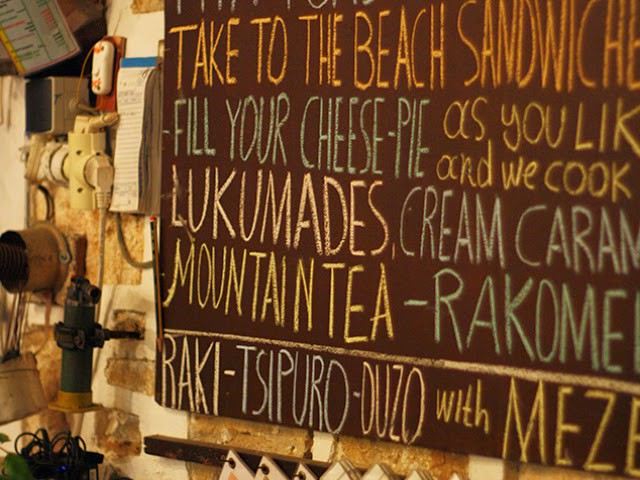 TAKE TO THE BEACH SANDWICHE
-FILL YOUR CHEESE-PIE as you LIK
and we cook
LUKUMADES, CREAM CARAM
MOUNTAIN TEA -RAKOME
RAKI-TSIPURO-OUZO with MEZE